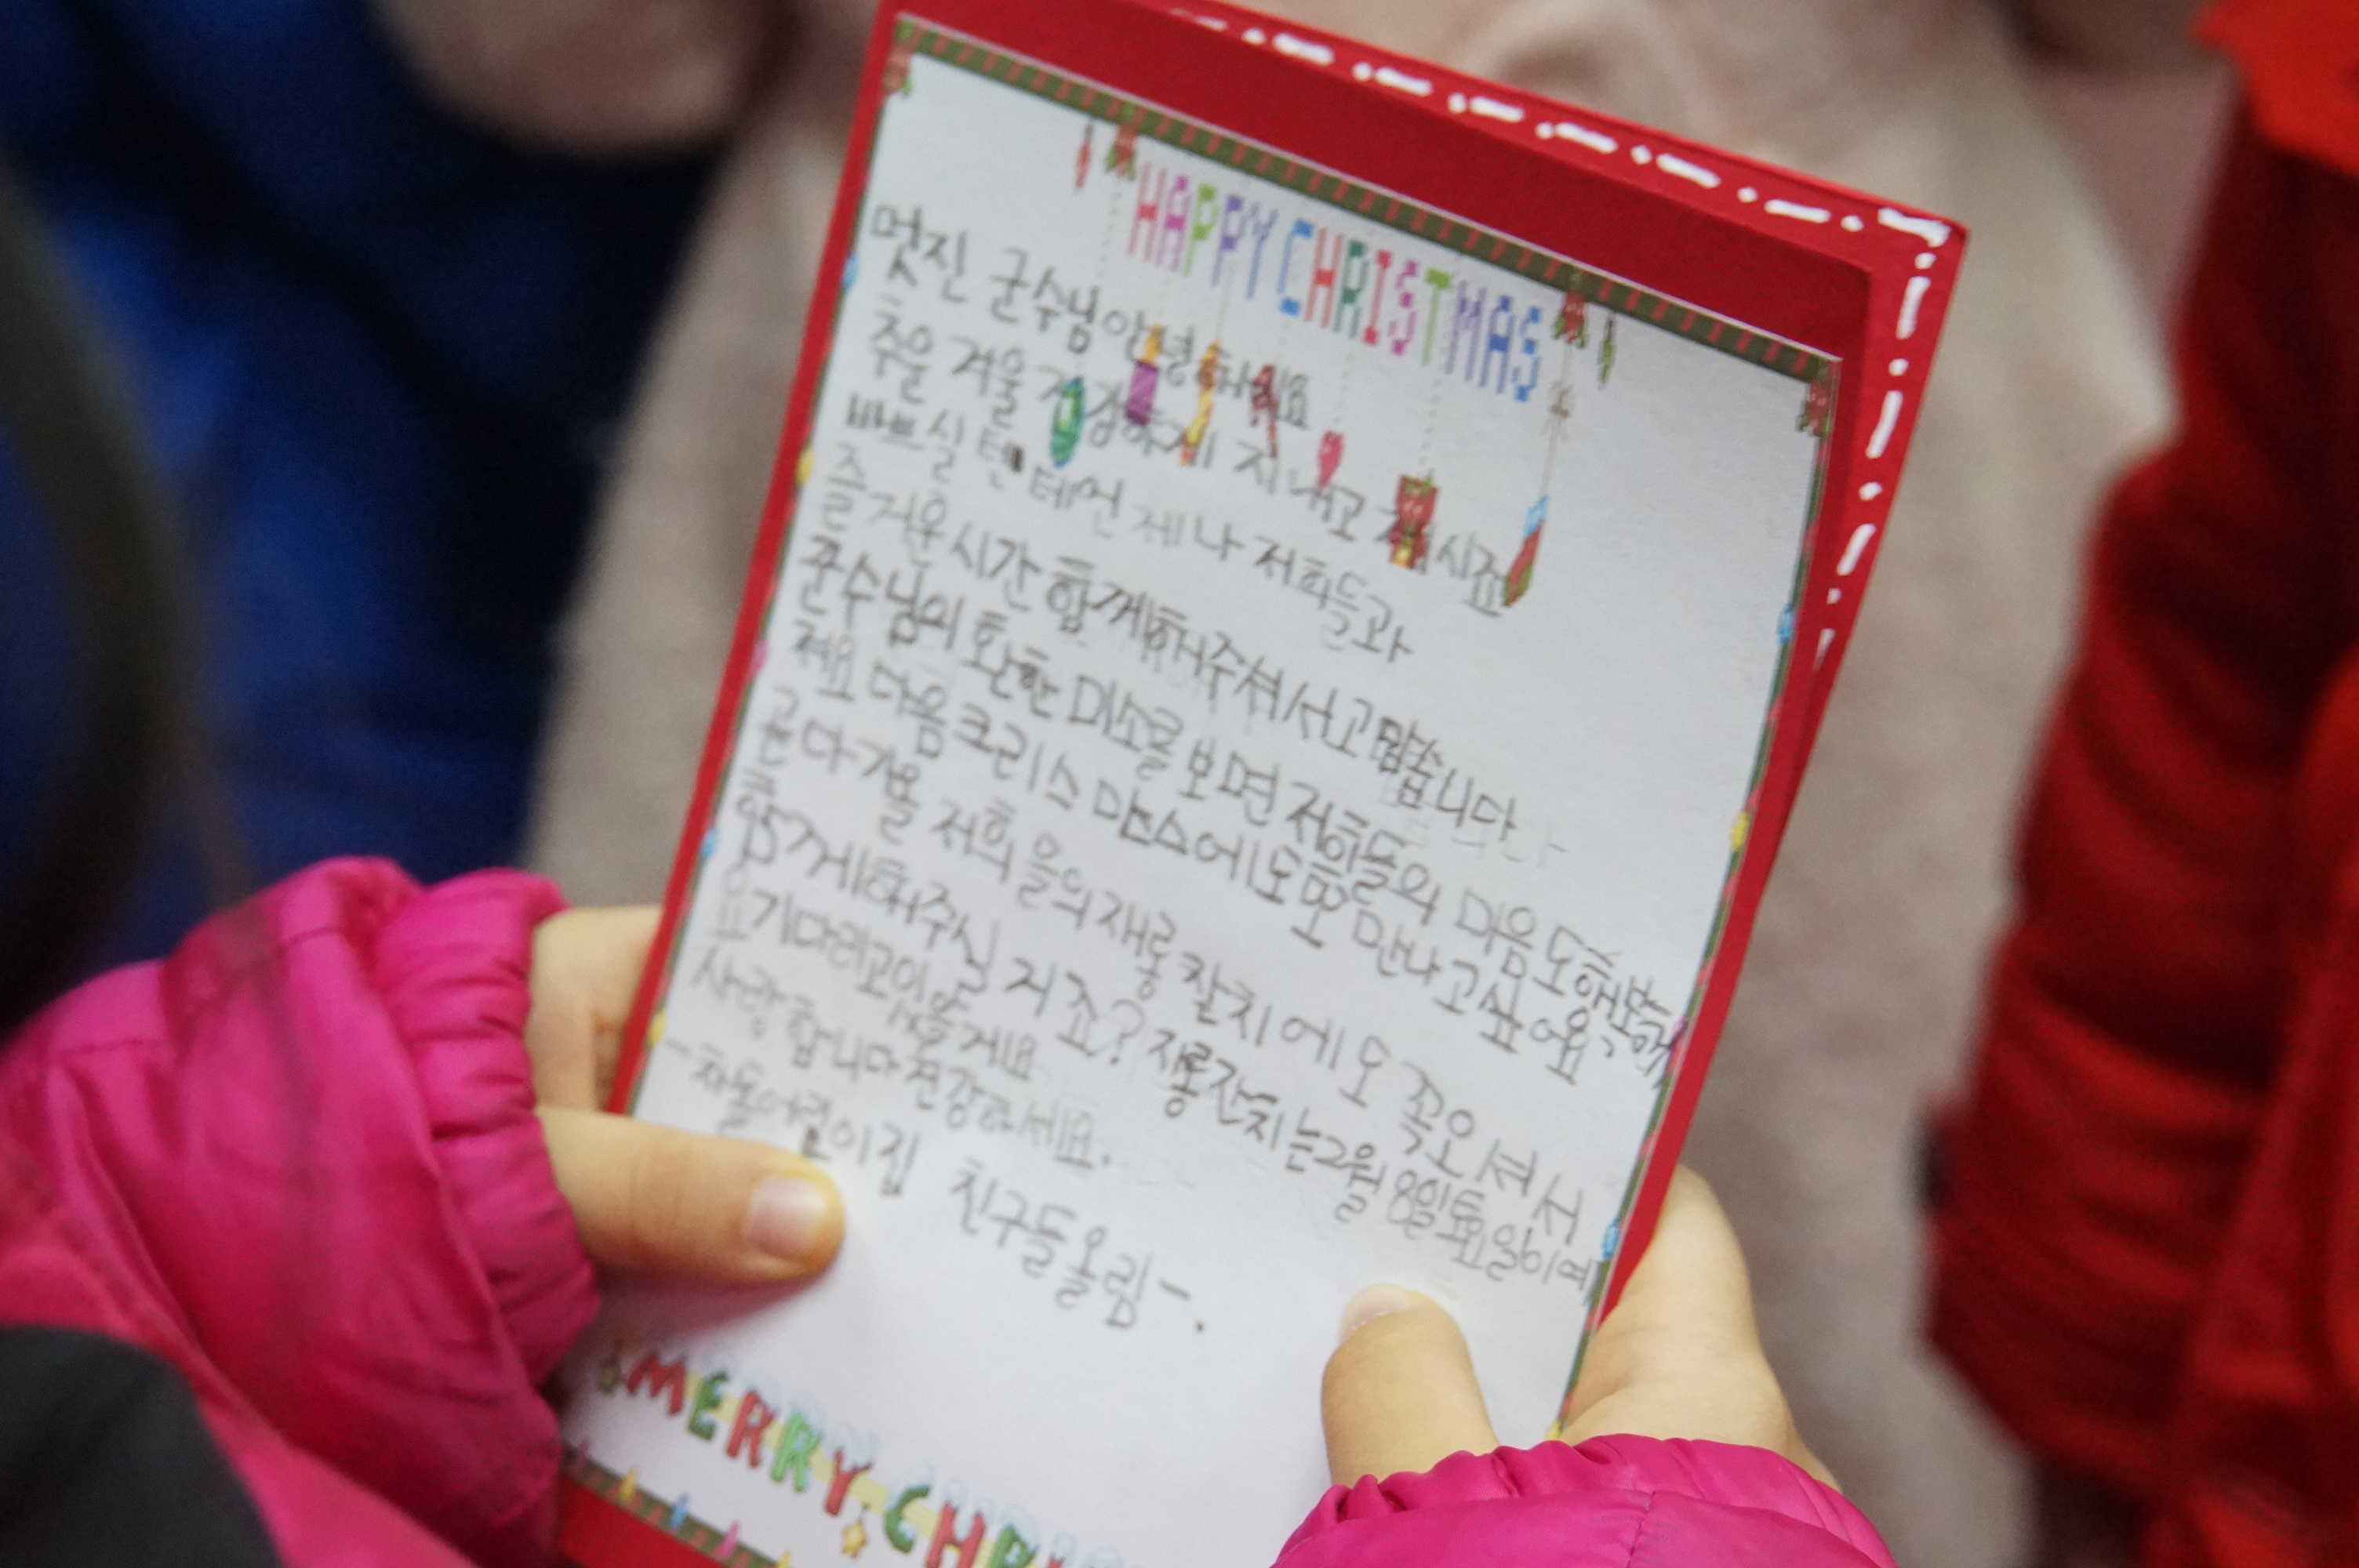 HAPPY CHRISTMAS
멋진 군수님안녕하세요
추운 겨울 건강하게 지내고 계시죠
빠쁘실텐테언제나 저희들과
즐거운시간함께해주셔서고맙습니다
군수님의환한 미소를 보면 저희들의 마음도행복해
져요 다음크리스맜스에도또만나고싶어요,
곧다가올 저희들의재롱칼치에도 꼭오셔서
함께해주실 거죠? 재롱잔치는2월8일토요일이며
요기다리고있을게요
사랑합니다건강하세요.
-차돌어린이집 친구들올림-.
MERRY CHRI